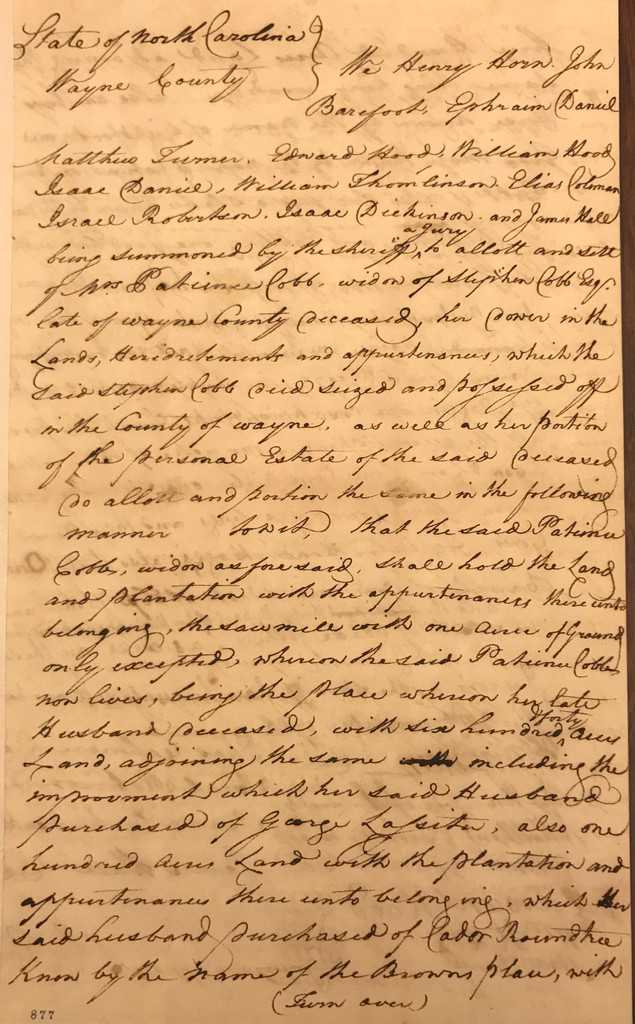 State of North Carolina }
Wayne County } We Henry Horn. John
Barefoot, Ephraim Daniel
Matthew Turner. Edward Hood, William Hood
Isaac Daniel, William Thomlinson. Elias Coleman
Israel Robertson. Isaac Dickinson. and James Hall
being summoned by the sheriff, a jury to allott and sett
of Mrs Patience Cobb. widow of Stephen Cobb Esqr.
late of Wayne County deceased, her dower in the
Lands, Heridretements and appurtenances, which the
said Stephen Cobb died seized and possessed off
in the County of Wayne. as well as her portion
of the personal Estate of the said deceased
do allott and portion the same in the following
manner towit, that the said Patience
Cobb, widow as fore said, shall hold the Land
and plantation with the appurtenances there unto
belonging, the saw mill with one Acre of Ground
only excepted, whereon the said Patience Cobb
now lives, being the place whereon her late
Husband deceased, with six hundred & forty Acres
Land, adjoining the same including the
improvment which her said Husband
purchased of George Lassiter, also one
hundred Acres Land with the plantation and
appurtenances there unto belonging, which Her
said husband purchased of Cador Roundtree
Know by the Name of the Browns place, with
(Turn over)
877